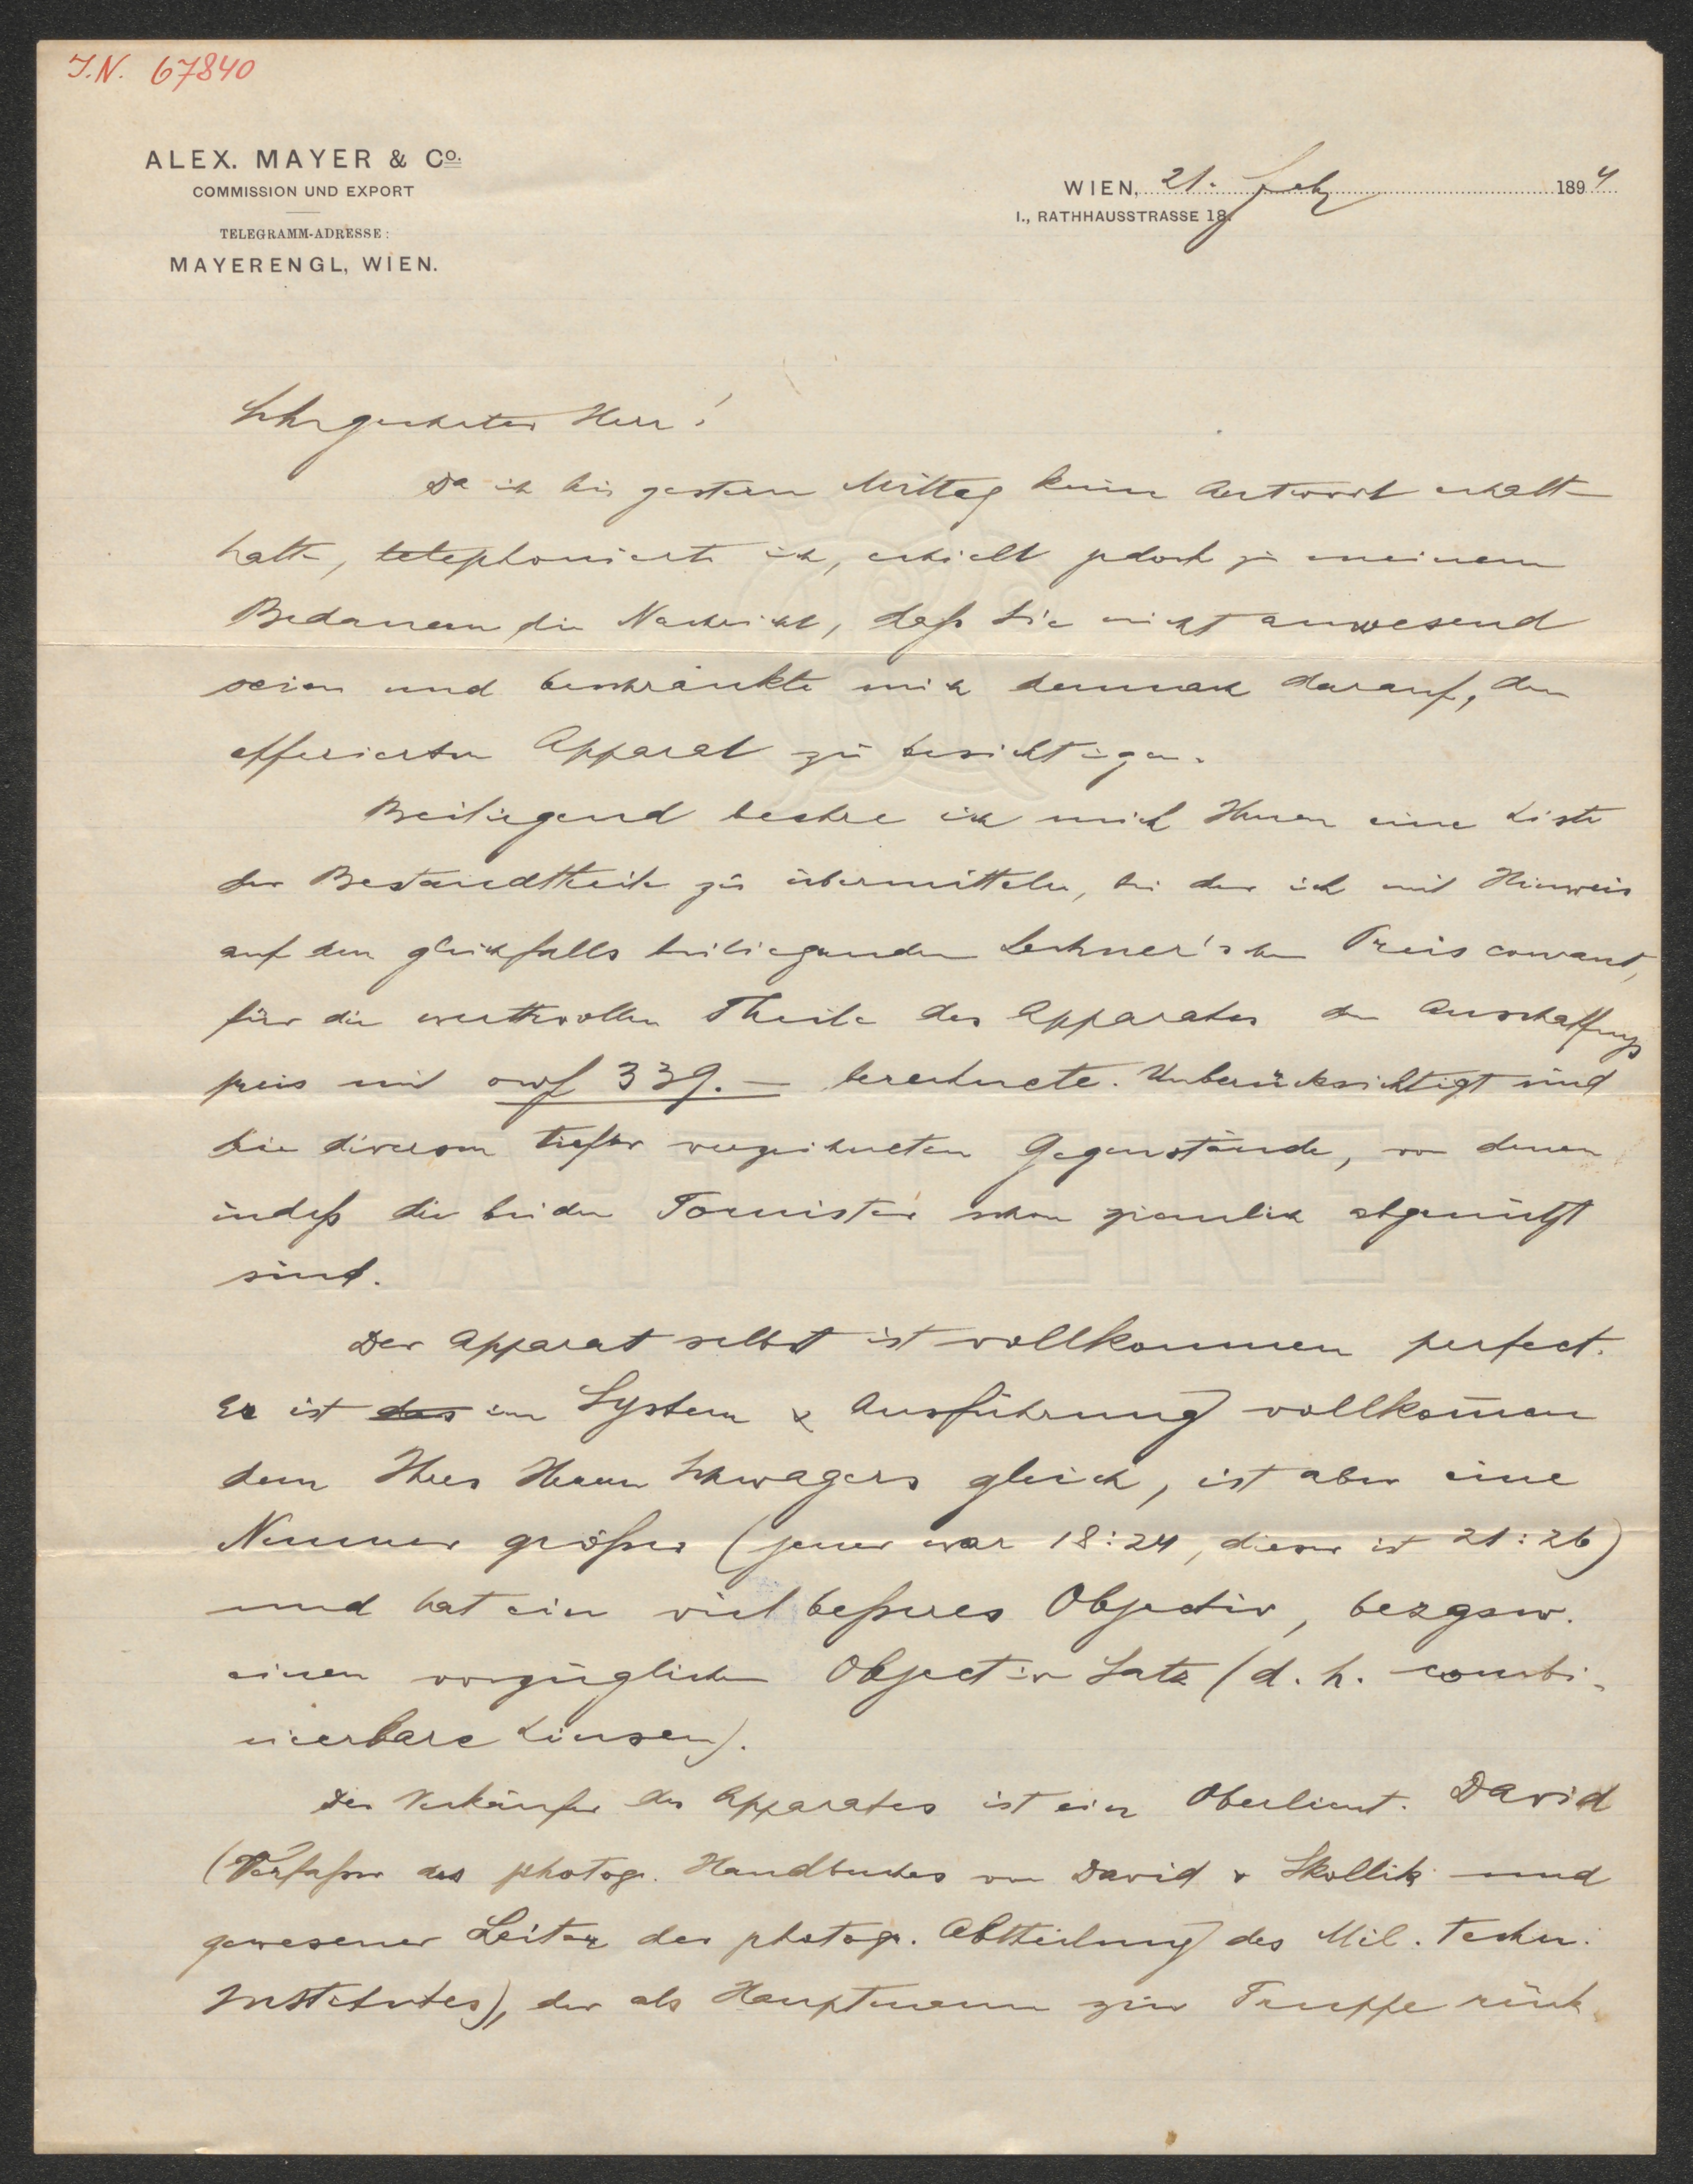 J.N. 67840
ALEX. MAYER & Co.
COMMISSION UND EXPORT
TELEGRAMM-ADRESSE:
MAYERENGL, WIEN.
WIEN, 21. Feb 1894
I., RATHHAUSSTRASSE 18.
Sehrgeehrter Herr!
Da ich bis gestern Mittag keine Antwort erhalten
hatte, telephonierte ich, erhielt jedoch zu meinem
Bedauern die Nachricht, daß Sie nicht anwesend
seien und beschränkte mich demnach darauf, den
offerierten Apparat zu besichtigen.
Beiliegend beehre ich mich Ihnen eine Liste
der Bestandtheile zu übermitteln, bei der ich mit Hinweis
auf den gleichfalls beiliegenden Lechner'schen Preiscourant,
für die werthvollen Theile des Apparates den Anschaffungs
preis mit owf 339.— berechnete. Unberücksichtigt sind
die diversen tiefer verzeichneten Gegenstände, von denen
indeß die beiden Tornister schon ziemlich abgenützt
sind.
Der Apparat selbst ist vollkommen perfect.
Er ist das im System & Ausführung vollkom̄en
dem Ihres Herrn Schwagers gleich, ist aber eine
Nummer größer (jener war 18:24, dieser ist 21:26)
und hat ein viel beßeres Objectiv, bezgsw.
einen vorzüglichen Objectiv Satz (d. h. combi-
nierbare Linsen).
Der Verkäufer des Apparates ist ein Oberlieut. David
(Verfaßer des photogr. Handbuches von David & Skollik und
gewesener Leiter der photogr. Abtheilung des Mil. techn.
Institutes), der als Hauptmann zur Truppe rück-